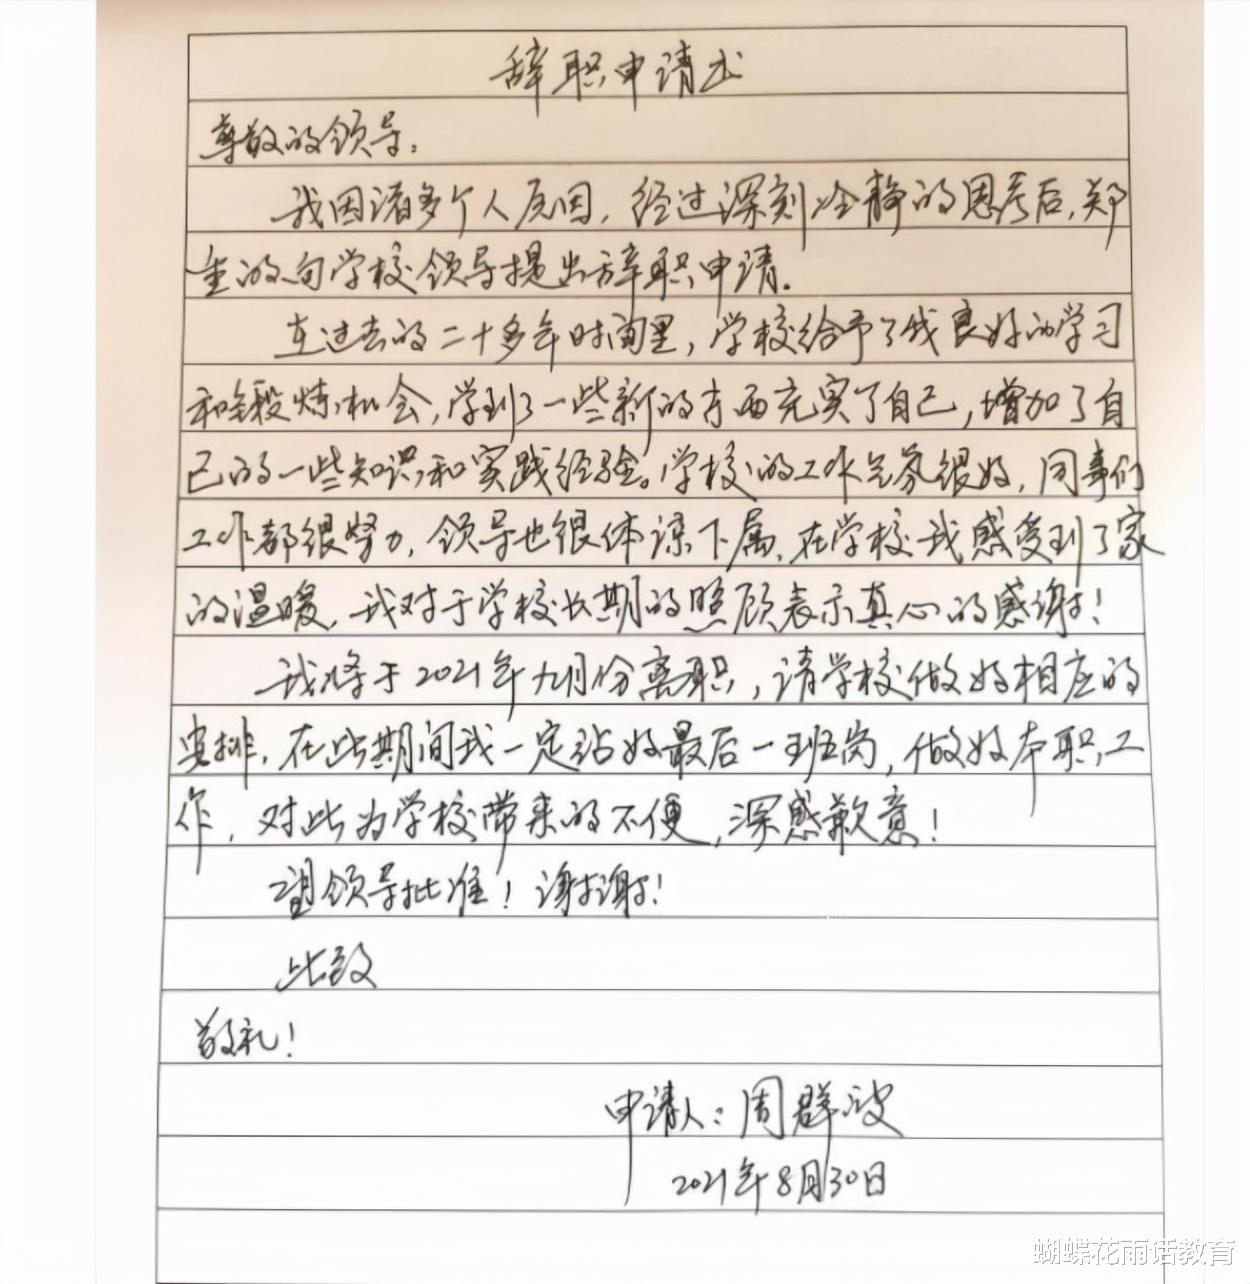 辞职申请书
尊敬的领导：
我因诸多个人原因，经过深刻冷静的思考后，郑
重的向学校领导提出辞职申请。
在过去的二十多年时间里，学校给予了我良好的学习
和锻炼机会，学到了一些新的东西充实了自己，增加了自
己的一些知识和实践经验。学校的工作气氛很好，同事们
工作都很努力，领导也很体谅下属，在学校我感受到了家
的温暖，我对于学校长期的照顾表示真心的感谢！
我将于2021年九月份离职，请学校做好相应的
安排，在此期间我一定站好最后一班岗，做好本职工
作，对此为学校带来的不便，深感歉意！
望领导批准！谢谢！
此致
敬礼！
申请人：周群波
2021年8月30日
蝴蝶花雨话教育